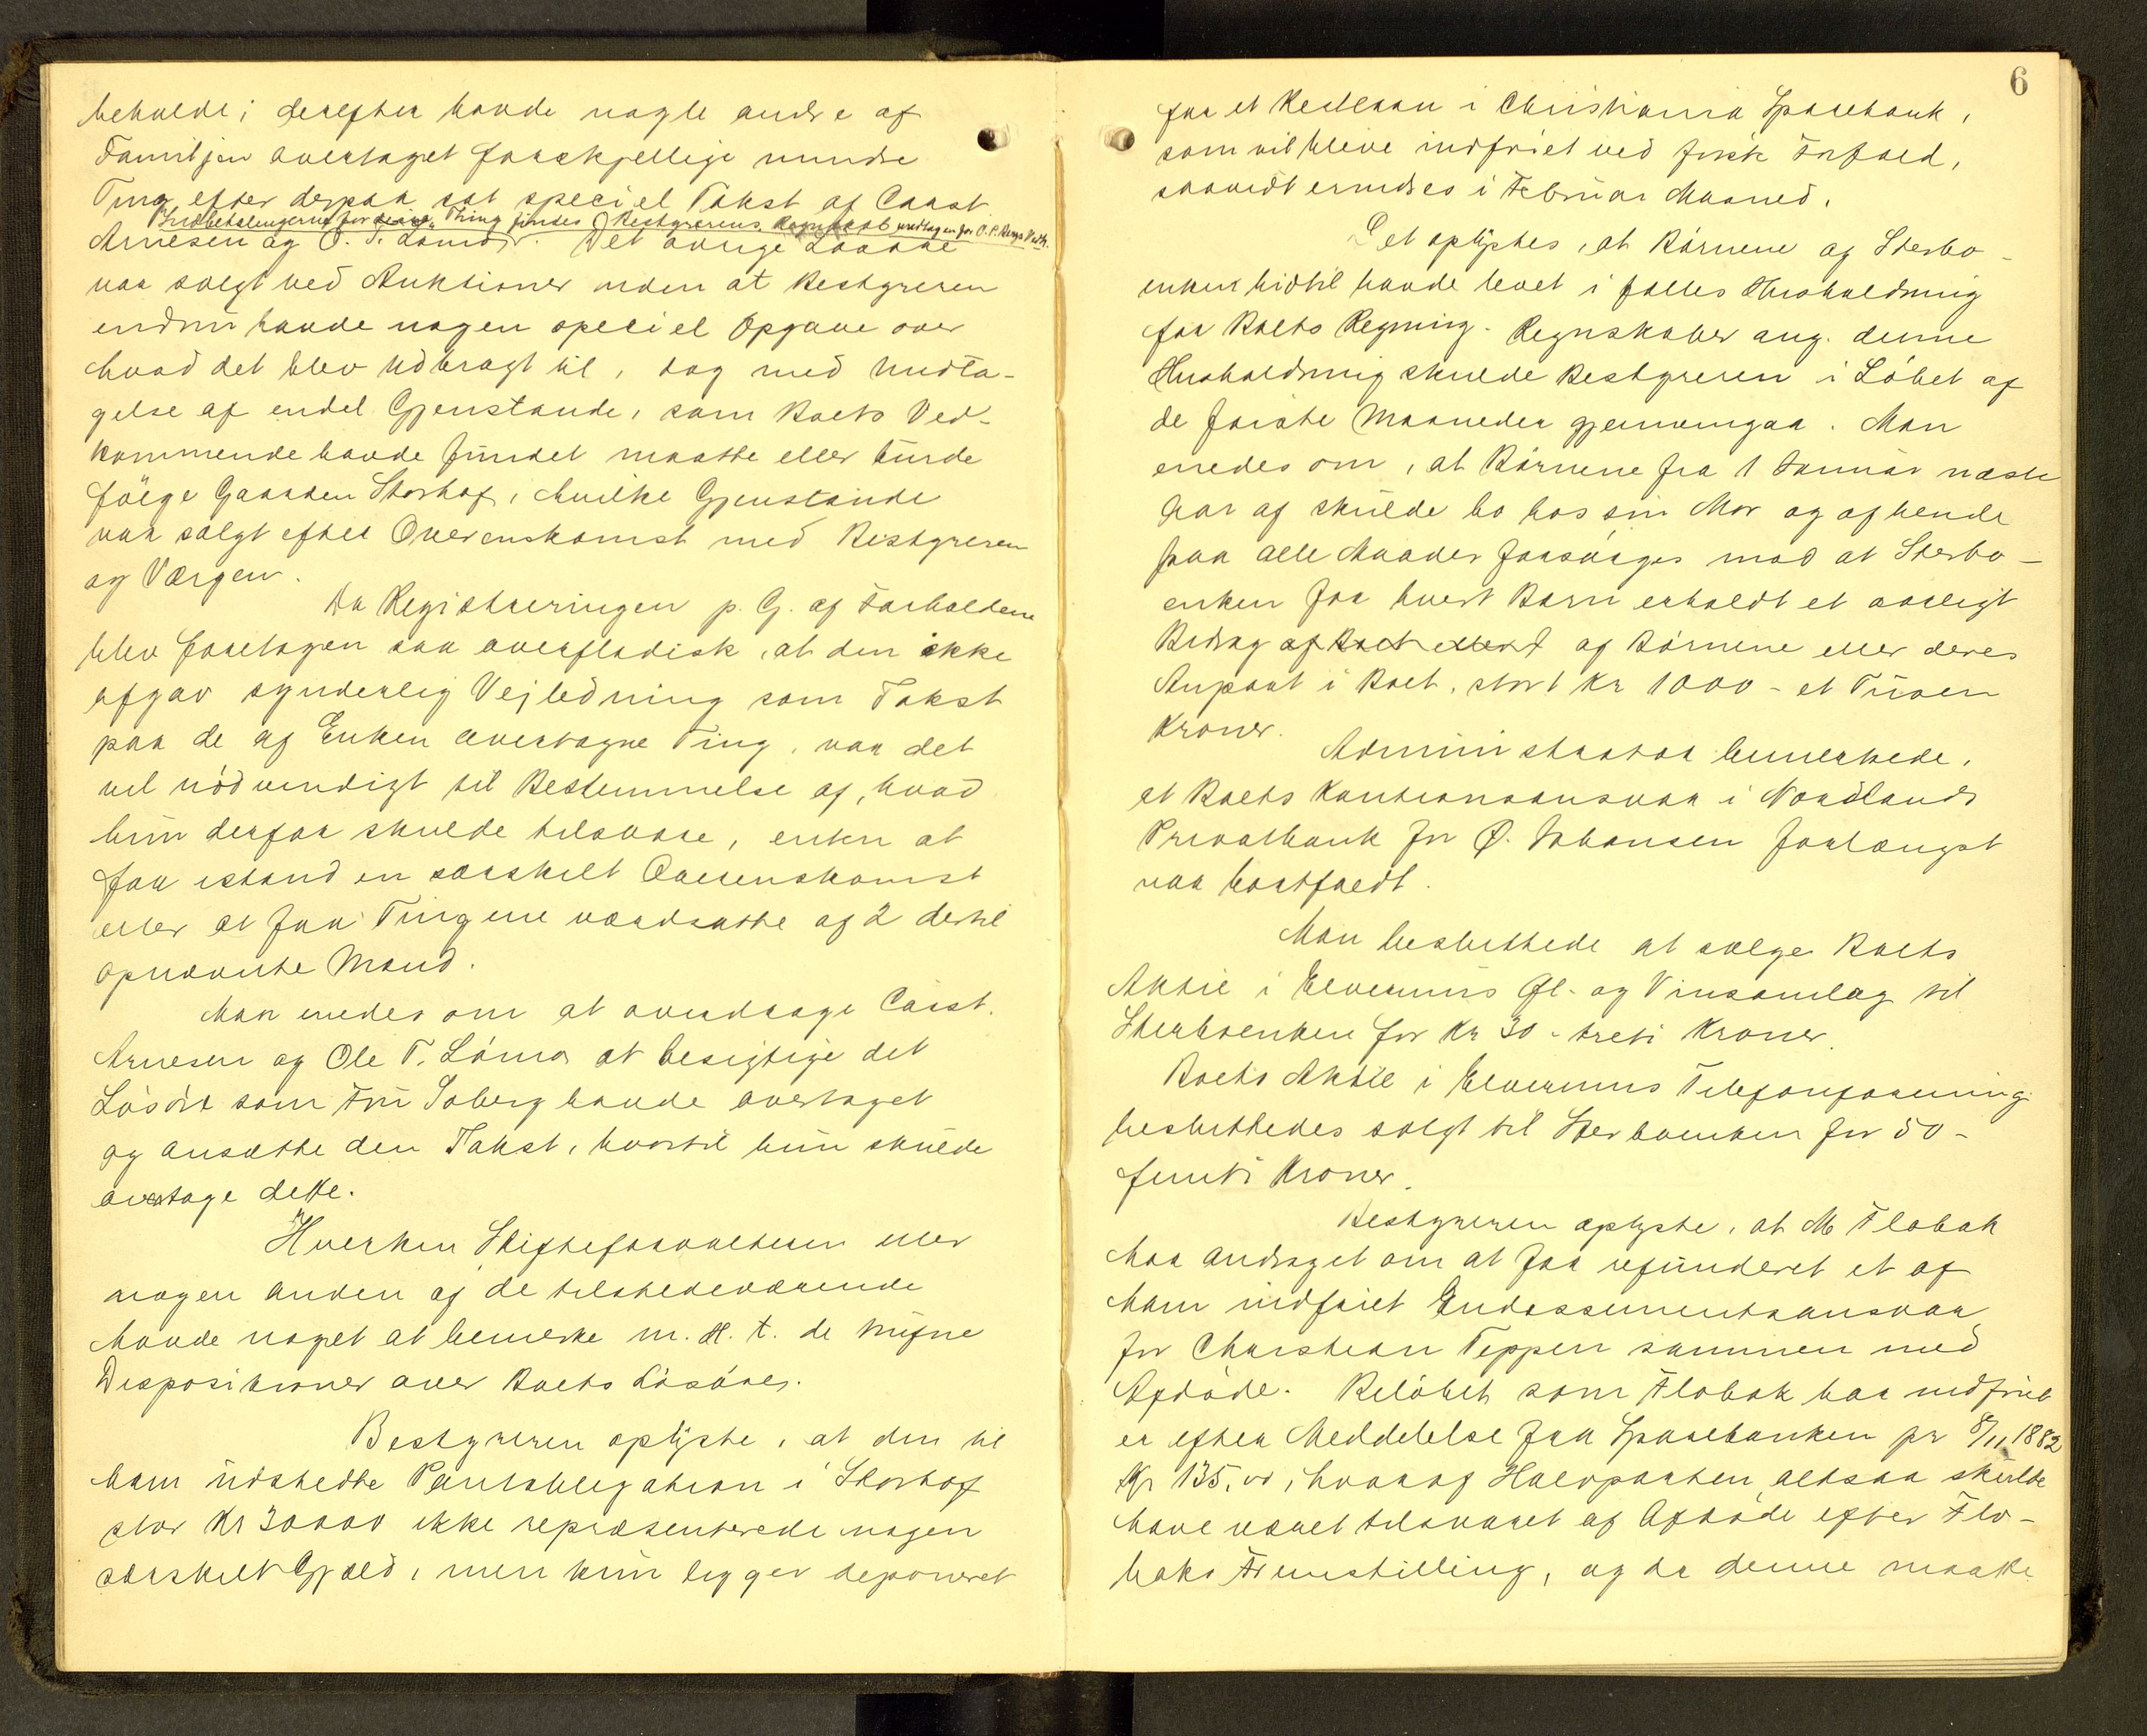 beholde; derefter havde nogle andre af
Familjen overtaget forskjellige mindre
Ting efter derpaa sat speciel Takst af Carst
Indbetalingerne for disse Ting findes i Bestyrerens Regnskab undtagen for O. P. Bergs Vedk.
Arnesen og O. T. Lømo. Det øvrige Løsøre
var solgt ved Auktioner uden at Bestyreren
endnu havde nogen speciel Opgave over
hvad det blev udbragt til, dog med Undta-
gelse af endel Gjenstande, som Boets Ved-
kommende havde fundet maatte eller burde
følge Gaarden Storhof, hvilke Gjenstande
var solgt efter Overenskomst med Bestyreren
og Værgen.
Da Registreringen p. G. af Forholdene
blev foretagen saa overfladisk, at den ikke
afgav synderlig Vejledning som Takst
paa de af Enken overtagne Ting, var det
vel nødvendigt til Bestemmelse af, hvad
hun derfor skulde tilsvare, enten at
faa istand en særskilt Overenskomst
eller at faa Tingene værdsatte af 2 dertil
opnævnte Mænd.
Man enedes om at overdrage Carst.
Arnesen og Ole T. Lømo at besigtige det
Løsøre som Fru Soberg havde overtaget
og ansætte den Takst, hvortil hun skulde
overtage dette.
Hverken Skifteforvalteren eller
nogen anden af de tilstedeværende
havde noget at bemerke m. H. t. de trufne
Dispositioner over Boets Løsøre.
Bestyreren oplyste, at den til
ham udstedte Pantobligation i Storhof
stor Kr 30000 ikke repræsenterede nogen
særskilt Gjæld, men kun ligger deponeret
6
for et Vexellaan i Christiania Sparebank,
som vil blive indfriet ved første Forfald,
saavidt erindres i Februar Maaned.
Det oplystes, at Børnene og Sterbo-
enken hidtil havde levet i fælles Husholdning
for Boets Regning. Regnskaber ang. denne
Husholdning skulde Bestyreren i Løbet af
de første Maaneder gjennemgaa. Man
enedes om, at Børnene fra 1 Januar næste
Aar af skulde bo hos sin Mor og af hende
paa alle Maader forsørges mod at Sterbo-
enken for hvert Barn erholdt et aarligt
Bidrag af Boet eller af Børnene eller deres
Anpart i Boet, stort Kr 1000 - et Tusen
Kroner.
Administrator bemerkede,
at Boets Kautionsansvar i Nordlands
Privatbank for Ø. Johansen forlængst
var bortfaldt.
Man besluttede at sælge Boets
Aktie i Elverums Øl- og Vinsamlag til
Sterboenken for Kr 30 - treti Kroner.
Boets Aktie i Elverums Telefonforening
besluttedes solgt til Sterboenken for 50 -
femti Kroner.
Bestyreren oplyste, at M Flobak
har andraget om at faa refunderet et af
ham indfriet Endossementsansvar
for Christian Teppen sammen med
Afdøde. Beløbet som Flobak har indfriet
er efter Meddelelse fra Sparebanken pr 8/11 1882
Kr 135,00, hvoraf Halvparten altsaa skulde
have været tilsvaret af Afdøde efter Flo-
baks Fremstilling, og da denne maatte